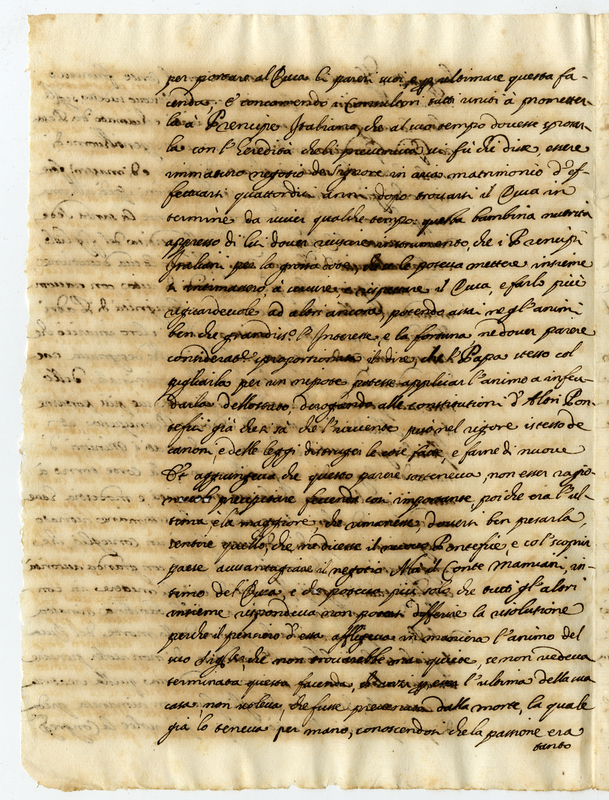 per portare al Duca li pareri suoi, e p ultimare questa fa-
cenda; e concorrendo i Consultori tutti uniti à prometter-
la à Prencipe Italiano, che al suo tempo dovesse sposar-
la con l'heredità che li perveniva, vi fù chi disse essere
immaturo negotio de Signore in ... matrimonio d'ef-
fettuarsi quattordici anni dopo trovarsi il Duca in
termine da viver qualche tempo; questa bambina nutrita
appresso di lui dover riuscire instrumento, che i Prencipi
Italiani per la grossa dote, che le poteva mettere insieme
s'inclinassero à venerare e rispettare il Duca, e farlo più
riguardevole ad altri ancora, potendo assai negl'animi
benche grandiss.i l'Interesse, e la fortuna, ne dover parere
considerab.e sproportionata il dire, che l'Papa stesso col
pigliarla per un nipote potesse applicar l'animo a infeu-
darla dello stato, derogando alle constitutioni d'Altri Pon-
tefici già che si sà che l'vivente può nel rigore istesso de
canoni, e delle leggi distrugger le cose fatte, e farne di nuove
Et aggiungeva che questo parere sosteneva, non esser ragio-
nevole precipitare facenda così importante, poiche era l'ul-
tima, e la maggiore che rimanesse, doversi ben pesarla,
sentire quello, che ne dicesse il nuovo Pontefice, e col scoprir
paese avvantaggiare il negotio. Mà il Conte Mamiani, in-
timo del Duca, e che poteva più solo, che tutti gl'altri
insieme rispondeva non potersi differire la risolutione
perche il pensiero d'essa affligeva in maniera l'animo del
suo Sig.re che non trovarebbe mai quiete, se non vedeva
terminata questa facenda, ... l'ultima della sua
casa, non voleva, che fusse prevenuta dalla morte, la quale
già lo teneva per mano, conoscendosi che la passione era
tanto